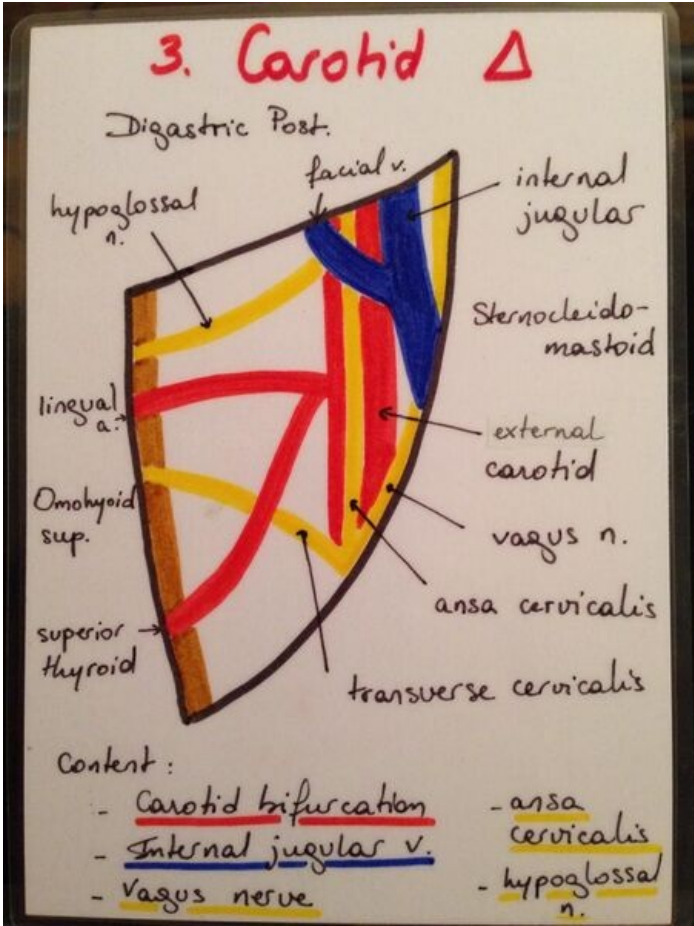 3. Carotid Δ
Digastric Post.
facial v.
hypoglossal
n.
internal
jugular
Sternocleido-
mastoid
lingual
a.
external
carotid
Omohyoid
sup.
vagus n.
ansa cervicalis
superior
thyroid
transverse cervicalis
Content :
- Carotid bifurcation
- Internal jugular v.
- Vagus nerve
- ansa
cervicalis
- hypoglossal
n.